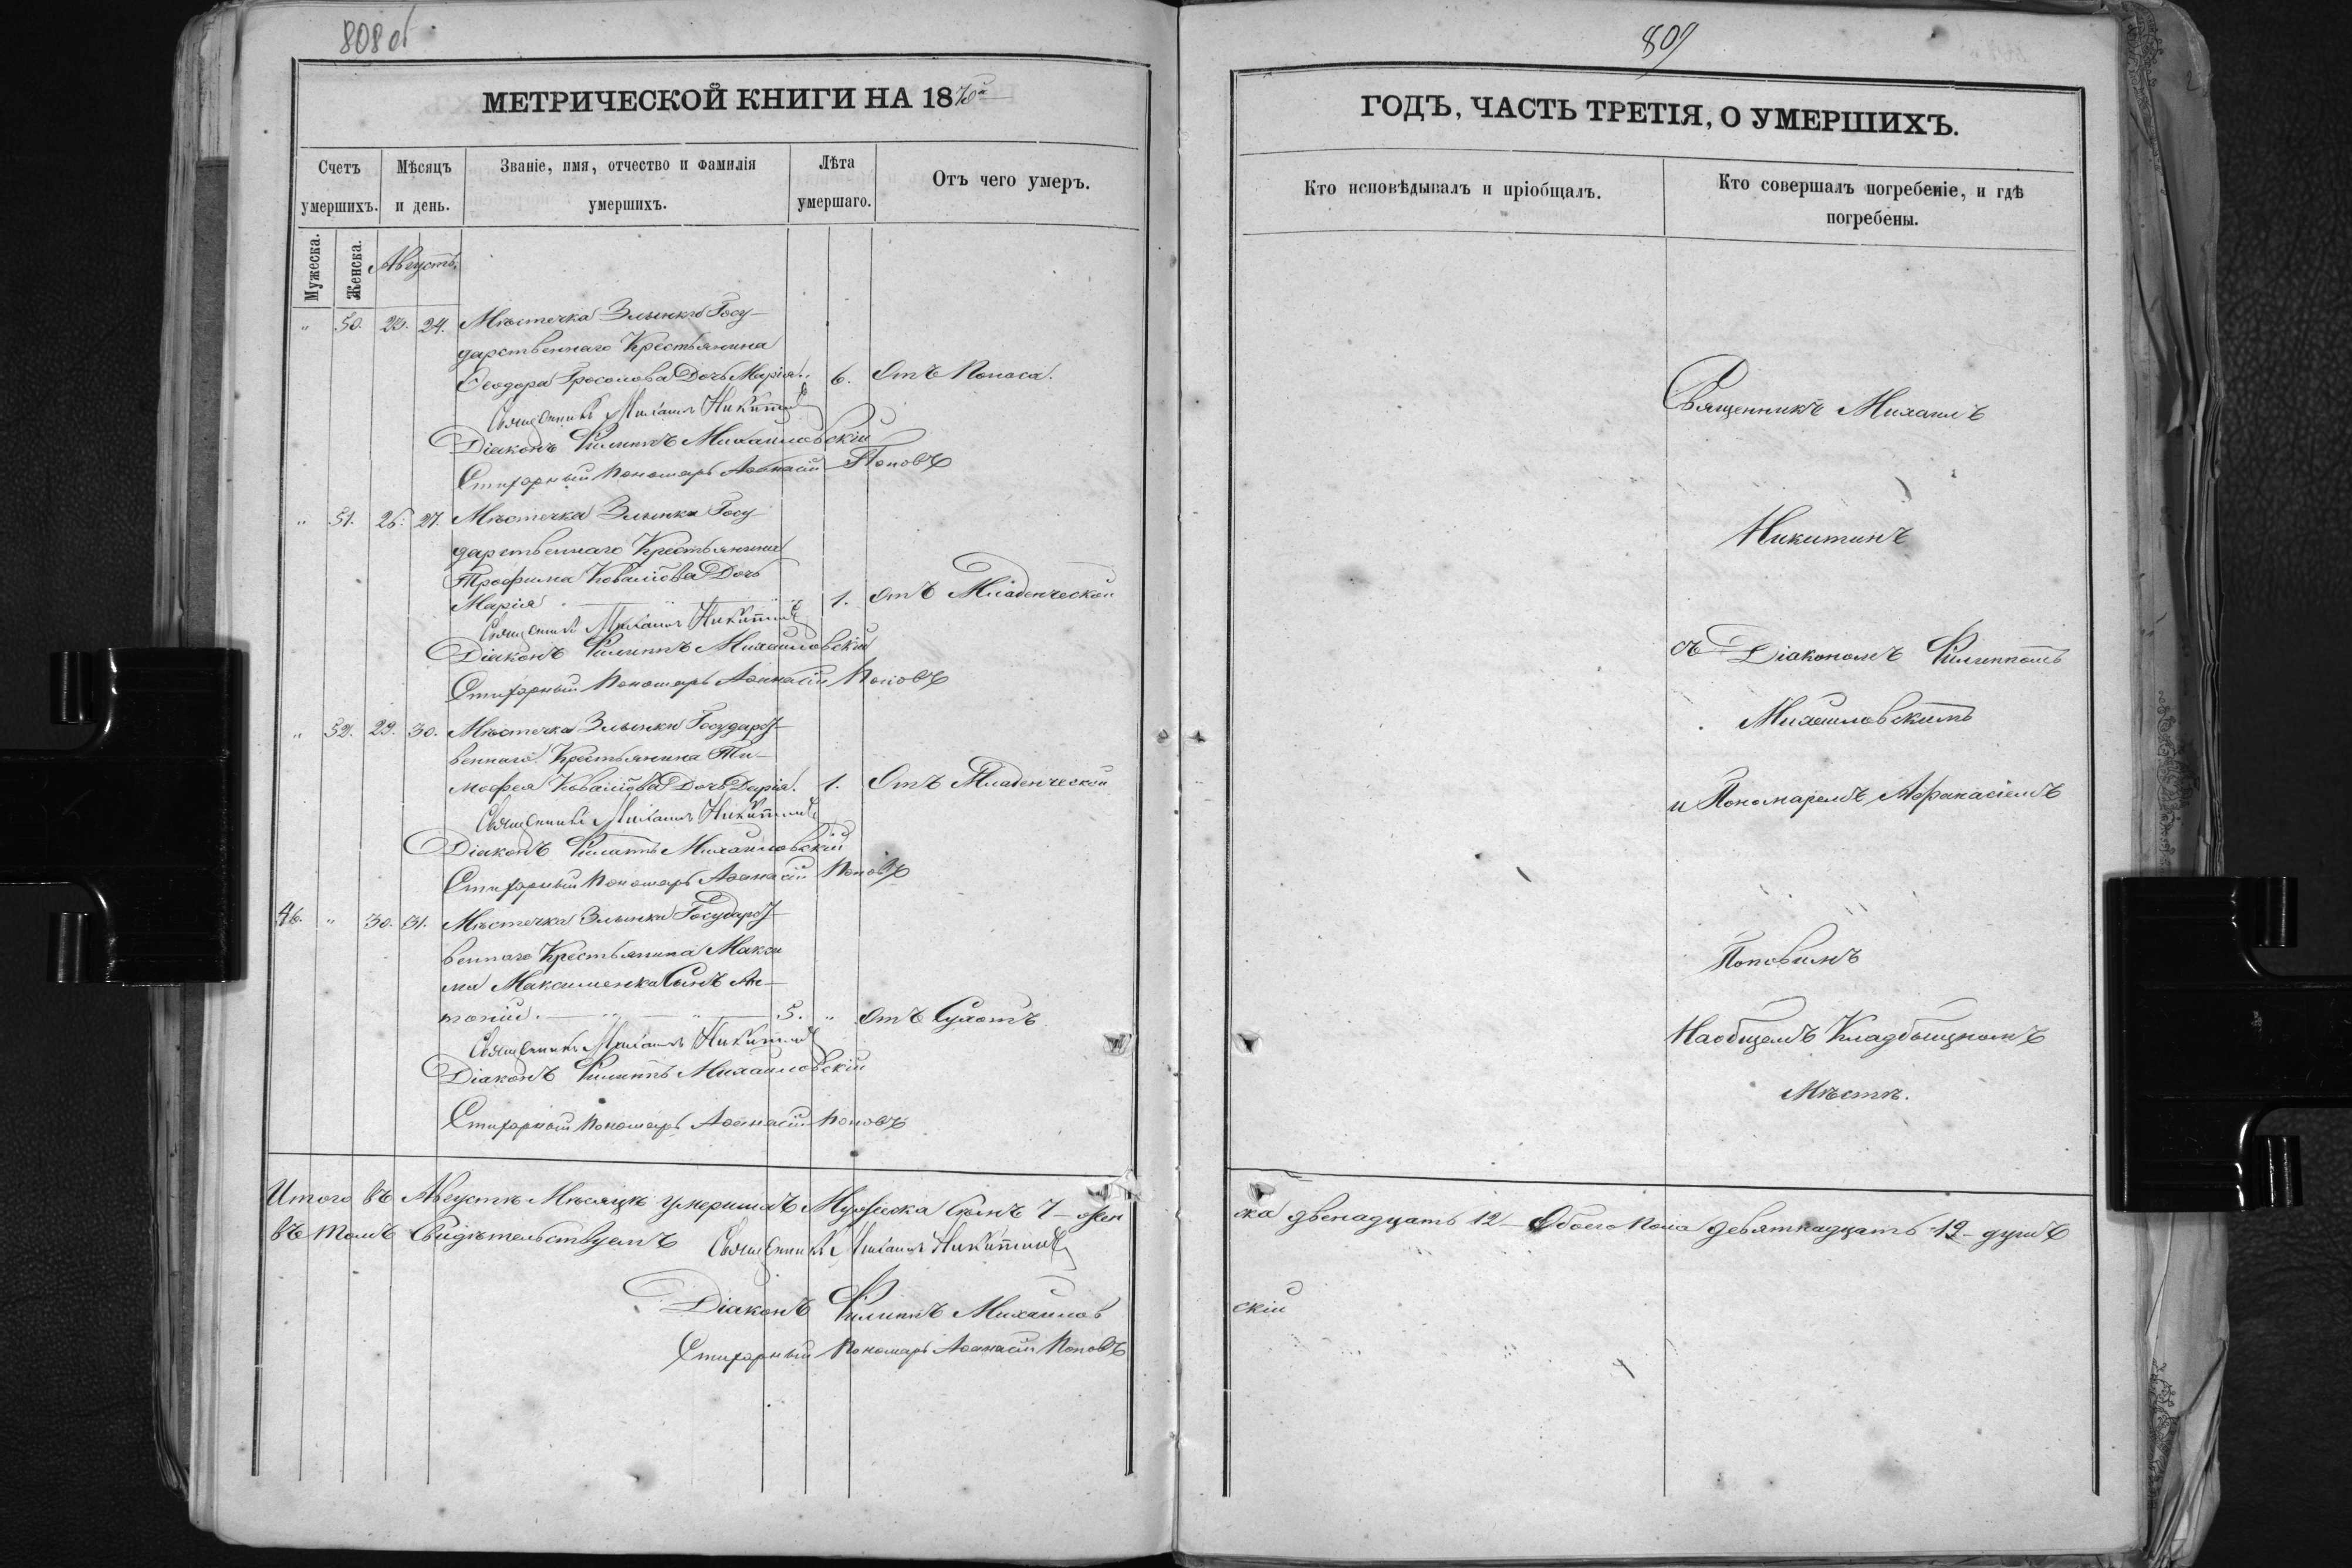 808 об
МЕТРИЧЕСКОЙ КНИГИ НА 1870й
Счетъ умершихъ.
Мужеска.
Женска.
Мѣсяцъ и день.
Званіе, имя, отчество и фамилія умершихъ.
Лѣта умершаго.
Отъ чего умеръ.
Августъ.
" 50. 23. 24. Мѣстечка Злынки Госу-
дарственнаго Крестьянина
Ѳеодора Дочь Марія. 6. Отъ Поноса.
Священникъ Михаилъ Никитинъ
Діаконъ Филиппъ Михайловскій
Стихарный Пономарь Аѳанасій Поповъ
" 51. 26. 27. Мѣстечка Злынки Госу-
дарственнаго Крестьянина
Трофима Ковалiова Дочь
Марія 1. Отъ Младенческой
Священникъ Михаилъ Никитинъ
Діаконъ Филиппъ Михайловскій
Стихарный Пономарь Аѳанасій Поповъ
" 52. 29. 30. Мѣстечка Злынки Государст-
веннаго Крестьянина Ти-
мофея Ковалiова Дочь Дарія. 1. Отъ Младенческой
Священникъ Михаилъ Никитинъ
Діаконъ Филиппъ Михайловскій
Стихарный Пономарь Аѳанасій Поповъ
46. " 30. 31. Мѣстечка Злынки Государст-
веннаго Крестьянина Макси
ма Максименка Сынъ Ан-
тоній. 5. " Отъ Сухотъ
Священникъ Михаилъ Никитинъ
Діаконъ Филиппъ Михайловскій
Стихарный Пономарь Аѳанасій Поповъ
Итого въ Августѣ Мѣсяцѣ умершихъ Мужеска 7 - жен
въ томъ Свидѣтельствуемъ Священникъ Михаилъ Никитинъ
Діаконъ Филиппъ Михайлов
Стихарный Пономарь Аѳанасій Поповъ
809
ГОДЪ, ЧАСТЬ ТРЕТІЯ, О УМЕРШИХЪ.
Кто исповѣдывалъ и пріобщалъ.
Кто совершалъ погребеніе, и гдѣ
погребены.
Священникъ Михаилъ
Никитинъ
съ Діакономъ Филиппомъ
Михайловскимъ
и Пономаремъ Афанасіемъ
Поповимъ
На общемъ Кладбыщномъ
Мѣстѣ.
ска двенадцать 12 - Обоего Пола девятнадцать 19 - душъ
скій